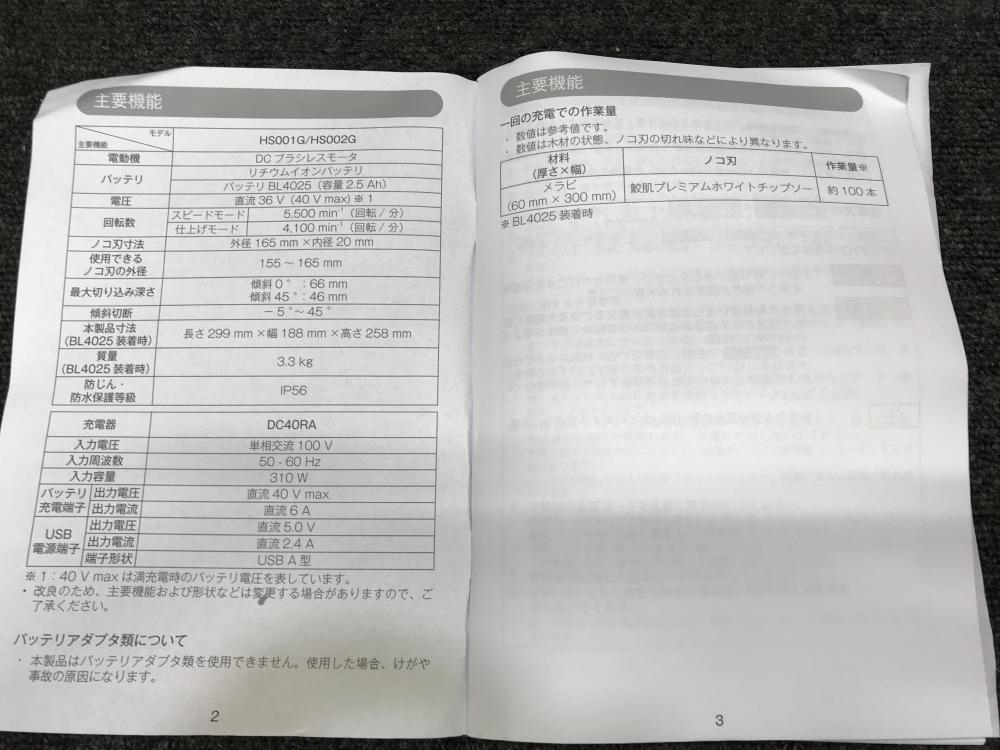 主要機能
モデル
主要機能
HS001G/HS002G
電動機 DC ブラシレスモータ
バッテリ リチウムイオンバッテリ
バッテリ BL4025（容量 2.5 Ah）
電圧 直流 36 V（40 V max）※ 1
回転数 スピードモード 5,500 min⁻¹（回転 / 分）
仕上げモード 4,100 min⁻¹（回転 / 分）
ノコ刃寸法 外径 165 mm ×内径 20 mm
使用できる
ノコ刃の外径 155 ～ 165 mm
最大切り込み深さ 傾斜 0 °：66 mm
傾斜 45 °：46 mm
傾斜切断 － 5 °～ 45 °
本製品寸法
（BL4025 装着時） 長さ 299 mm ×幅 188 mm ×高さ 258 mm
質量
（BL4025 装着時） 3.3 kg
防じん・
防水保護等級 IP56
充電器 DC40RA
入力電圧 単相交流 100 V
入力周波数 50 - 60 Hz
入力容量 310 W
バッテリ
充電端子 出力電圧 直流 40 V max
出力電流 直流 6 A
USB
電源端子 出力電圧 直流 5.0 V
出力電流 直流 2.4 A
端子形状 USB A 型
※ 1：40 V max は満充電時のバッテリ電圧を表しています。
・ 改良のため、主要機能および形状などは変更する場合がありますので、ご
了承ください。
バッテリアダプタ類について
・ 本製品はバッテリアダプタ類を使用できません。使用した場合、けがや
事故の原因になります。
2
主要機能
一回の充電での作業量
・ 数値は参考値です。
・ 数値は木材の状態、ノコ刃の切れ味などにより異なります。
材料
（厚さ×幅） ノコ刃 作業量※
メラピ
（60 mm × 300 mm） 鮫肌プレミアムホワイトチップソー 約 100 本
※ BL4025 装着時
3